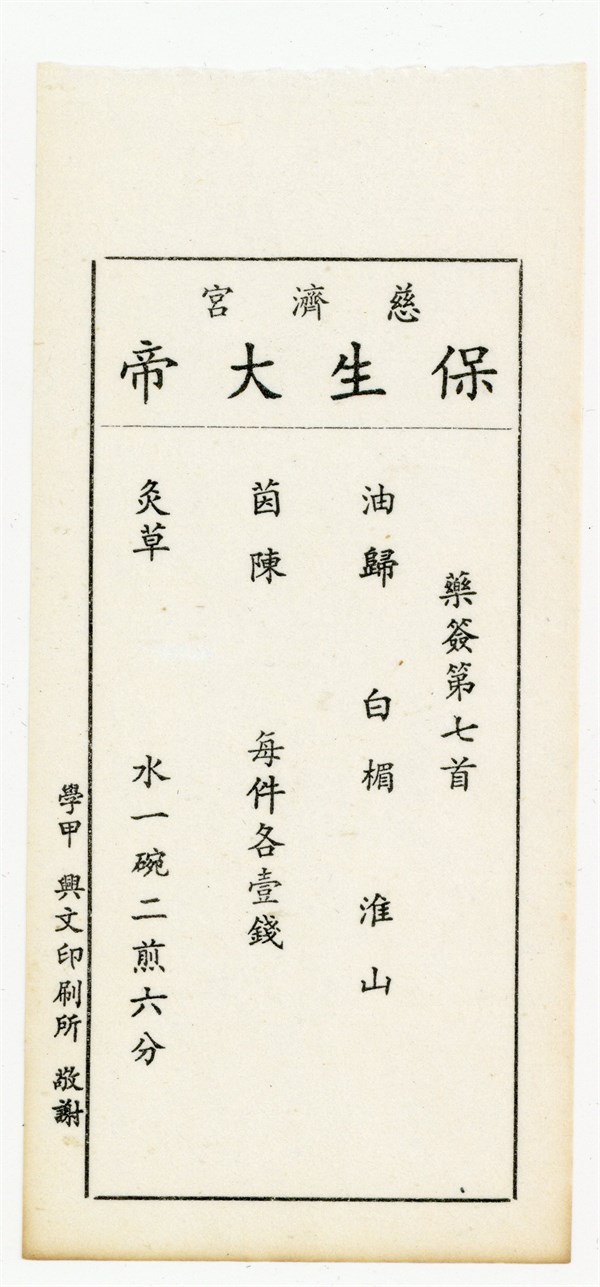 慈濟宮
保生大帝
藥簽第七首
油歸 白楣 淮山
茵陳 每件各壹錢
灸草 水一碗二煎六分
學甲 興文印刷所 敬謝